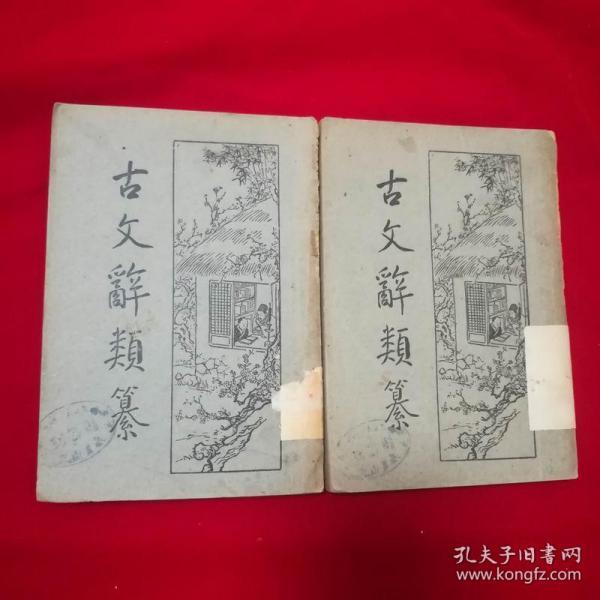 古文辭類纂
古文辭類纂
孔夫子旧書网
www.kongfz.com